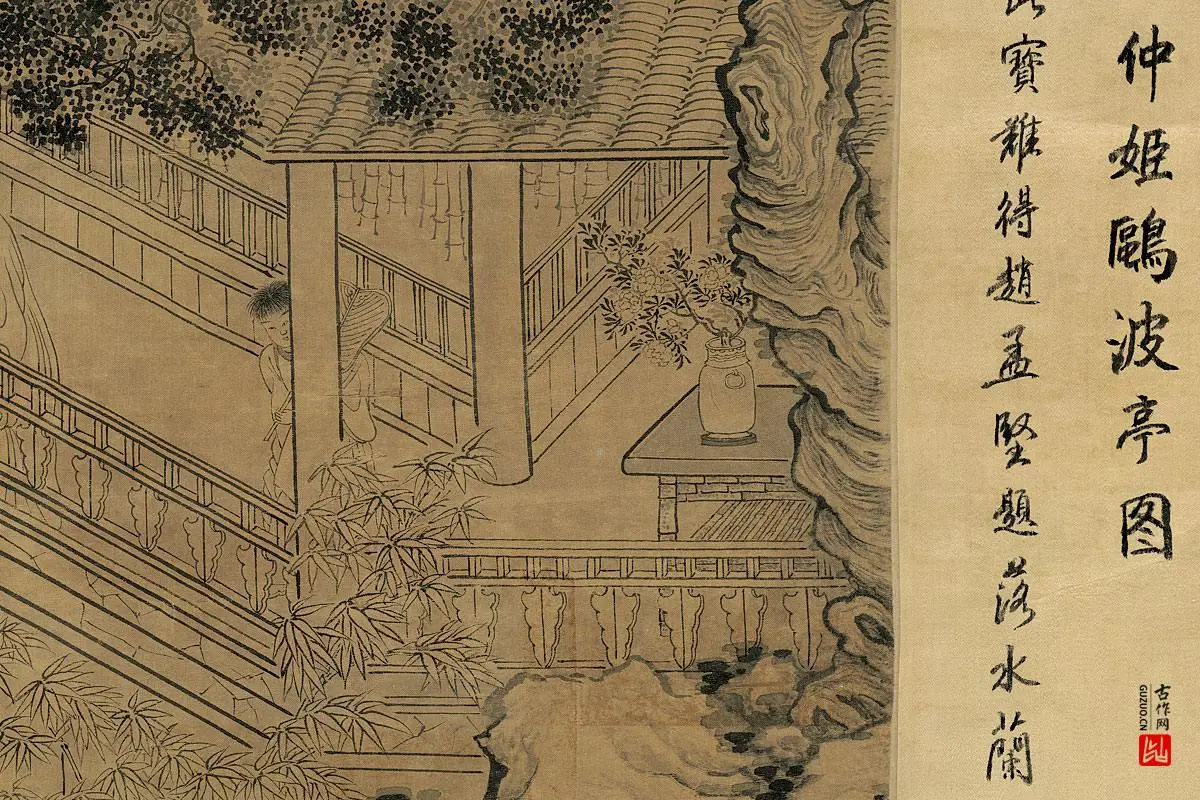 仲姬鷗波亭图
寶難得趙孟堅題落水蘭
古作网
GUZUO.CN